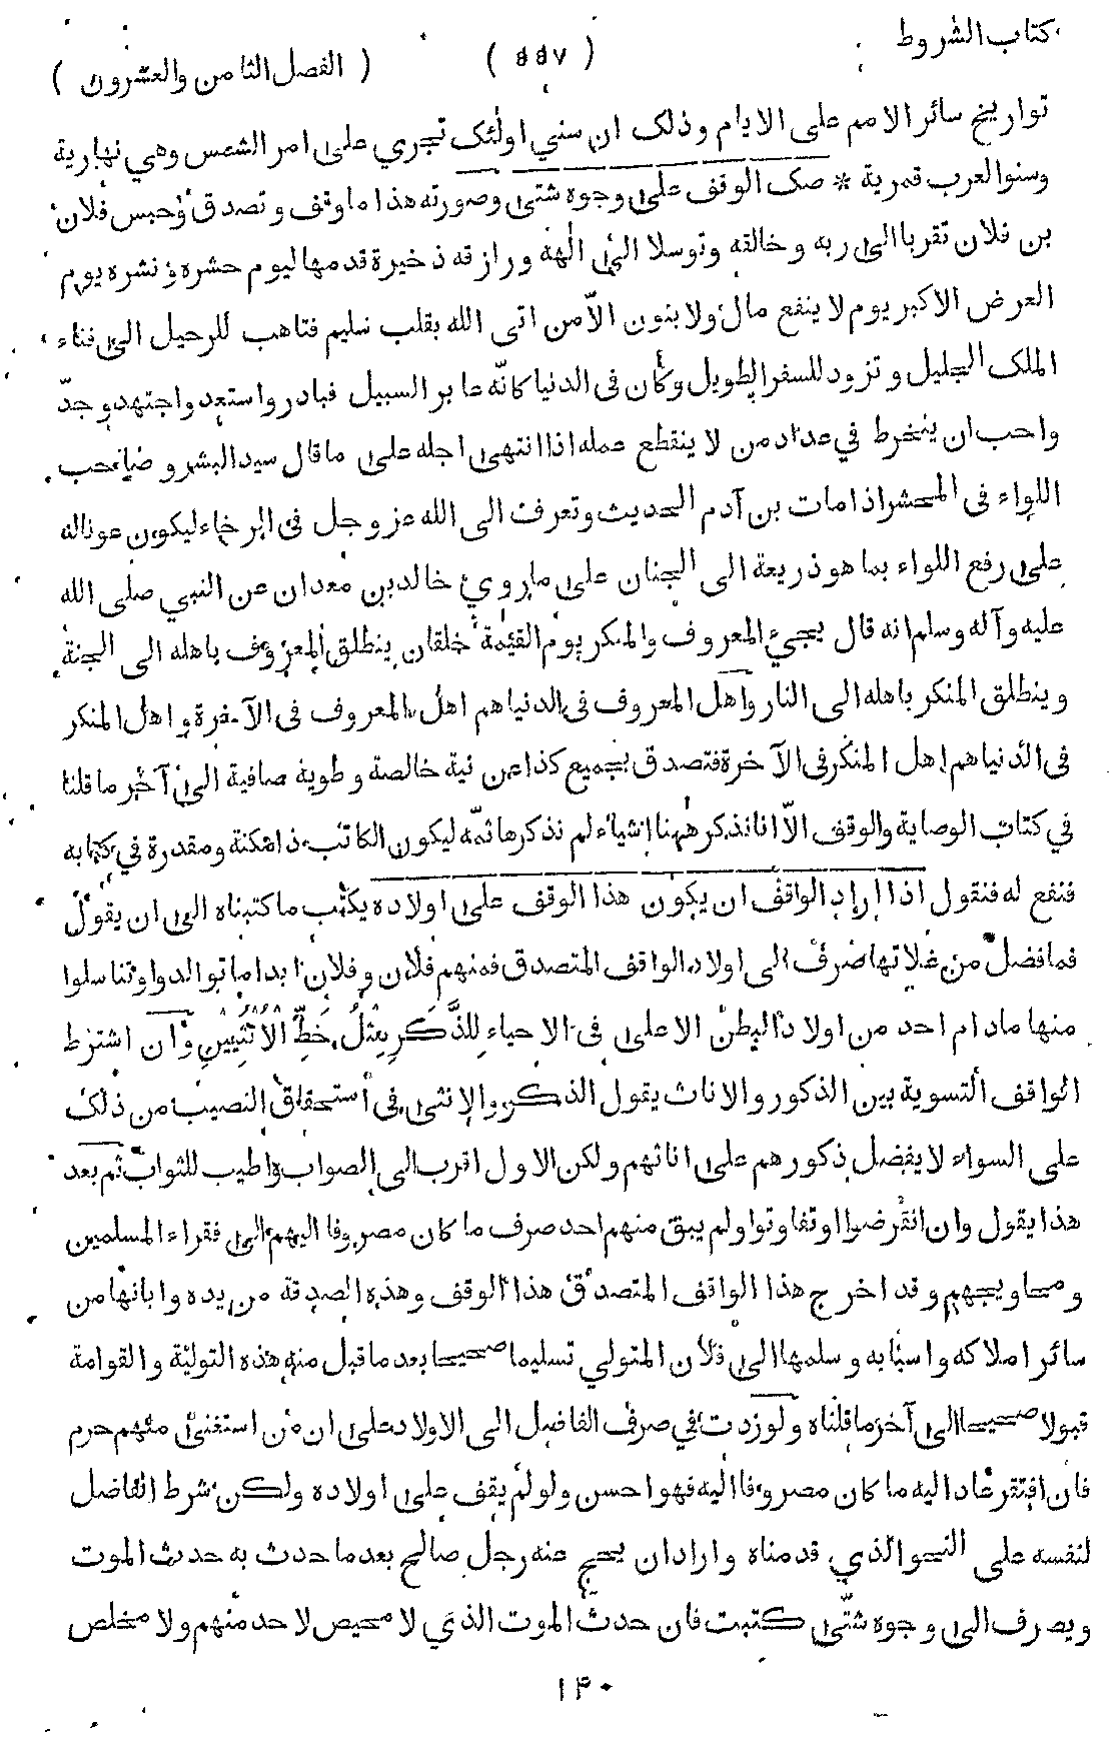 كتاب الشروط
( ٥٥٧ )
( الفصل الثامن والعشرون )
تواريخ سائر الامم على الايام وذلك ان سني اولئك تجري على امر الشمس وهي نهارية
وسنوا العرب قمرية * صك الوقف على وجوه شتى وصورته هذا ما وقف وتصدق وحبس فلان
بن فلان تقربا الى ربه وخالقه وتوسلا الى الهه ورازقه ذخيرة قدمها ليوم حشره ونشره يوم
العرض الاكبر يوم لا ينفع مال ولا بنون الّا من اتى الله بقلب سليم فتاهب للرحيل الى فناء
الملك الجليل وتزود للسفر الطويل وكأن في الدنيا كانّه عابر السبيل فبادر واستعد واجتهد وجدّ
واحب ان ينخرط في عداد من لا ينقطع عمله اذا انتهى اجله على ما قال سيد البشر و صاحب
اللواء فى المحشر اذا مات بن آدم الحديث وتعرف الى الله عز وجل فى الرخاء ليكون عونا له
على رفع اللواء بما هو ذريعة الى الجنان على ما روي خالد بن معدان عن النبي صلى الله
عليه وآله وسلم انه قال يجيء المعروف والمنكر يوم القيٰمة خلقان ينطلق المعروف باهله الى الجنة
وينطلق المنكر باهله الى النار واهل المعروف فى الدنيا هم اهل المعروف فى الآخرة واهل المنكر
فى الدنيا هم اهل المنكر فى الآخرة فتصدق بجميع كذا عن نية خالصة وطوية صافية الى آخر ما قلنا
في كتاب الوصاية والوقف الّا انا نذكر ههنا اشياء لم نذكرها ثمّه ليكون الكاتب ذا مكنة ومقدرة في كتابه
فنفع له فنقول اذا اراد الواقف ان يكون هذا الوقف على اولاده يكتب ما كتبناه الى ان يقول
فما فضل من غلاتها صرف الى اولاد الواقف المتصدق فمنهم فلان وفلان ابدا ما توالدوا وتناسلوا
منها مادام احد من اولاد البطن الاعلى فى الاحياء لِلذَّكَرِ مِثْلُ حَظِّ الْأُنْثَيَيْنِ وان اشترط
الواقف التسوية بين الذكور والاناث يقول الذكر والانثى فى استحقاق النصيب من ذلك
على السواء لا يفضل ذكورهم على اناثهم ولكن الاول اقرب الى الصواب واطيب للثواب ثم بعد
هذا يقول وان انقرضوا او تفاوتوا ولم يبق منهم احد صرف ما كان مصروفا اليهم الى فقراء المسلمين
ومحاويجهم وقد اخرج هذا الواقف المتصدق هذا الوقف وهذه الصدقة من يده وابانها من
سائر املاكه واسبابه وسلمها الى فلان المتولي تسليما صحيحا بعد ما قبل منه هذه التولية والقوامة
قبولا صحيحا الى آخر ما قلناه ولو زدت في صرف الفاضل الى الاولاد على ان من استغنى منهم حرم
فان افتقر عاد اليه ما كان مصروفا اليه فهو احسن ولو لم يقف على اولاده ولكن شرط الفاضل
لنفسه على النحو الذي قدمناه واراد ان يحج عنه رجل صالح بعد ما حدث به حدث الموت
ويصرف الى وجوه شتّى كتبت فان حدث الموت الذي لا محيص لاحد منهم ولا مخلص
١٤٠